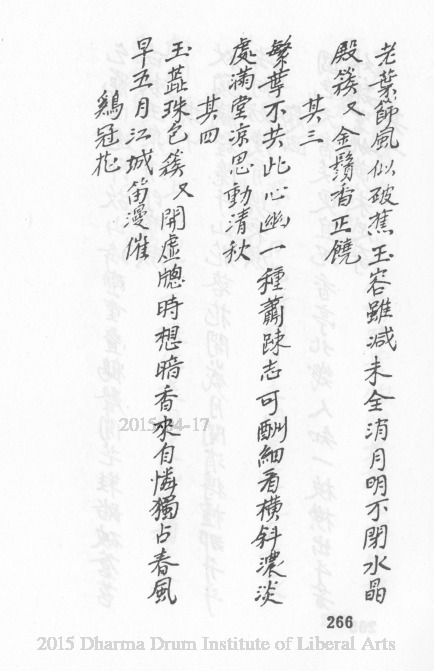 老葉篩風似破蕉玉容雖减未全消月明不閉水晶
殿簇又金鬚香正饒
其三
繁萼不共此心幽一種蕭踈志可酬細看橫斜濃淡
處滿堂凉思動清秋
其四
玉蕋珠包簇又開虛牕時想暗香來自憐獨占春風
早五月江城笛漫催
鷄冠花
2015-04-17
266
2015 Dharma Drum Institute of Liberal Arts